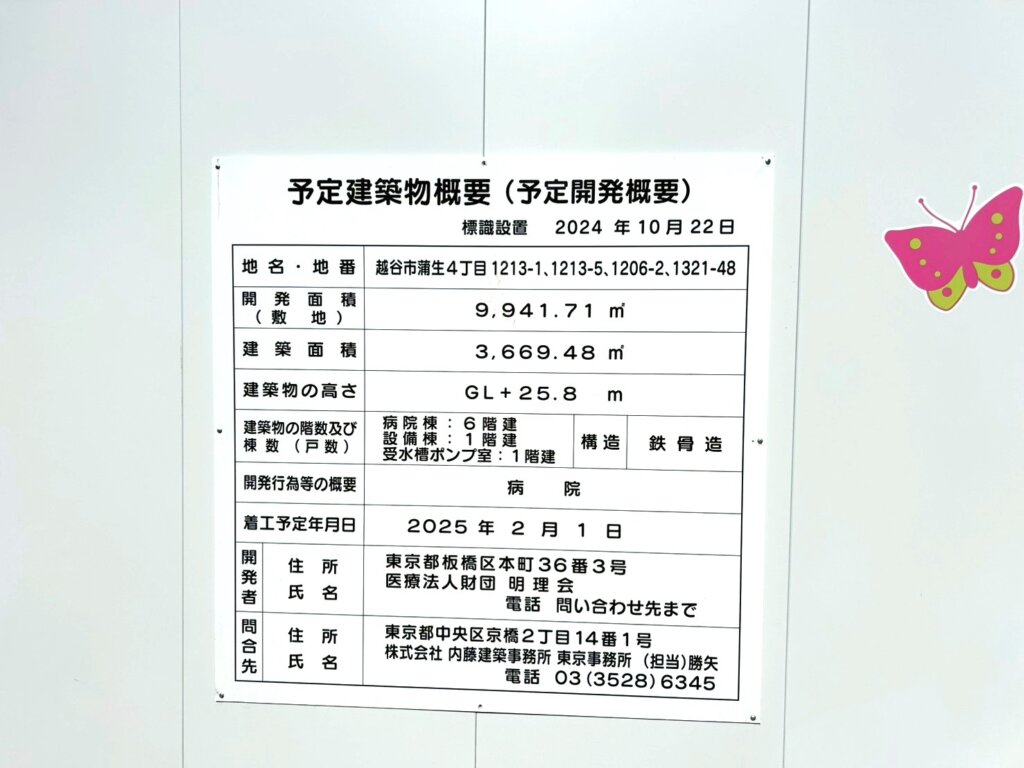 予定建築物概要（予定開発概要）
標識設置 2024 年 10 月 22 日
地名・地番 越谷市蒲生4丁目1213-1、1213-5、1206-2、1321-48
開発面積
（敷地） 9,941.71 ㎡
建築面積 3,669.48 ㎡
建築物の高さ GL＋25.8 m
建築物の階数及び
棟数（戸数）
病院棟：6階建
設備棟：1階建
受水槽ポンプ室：1階建
構造 鉄骨造
開発行為等の概要 病院
着工予定年月日 2025 年 2 月 1 日
開発者
住所 東京都板橋区本町36番3号
氏名 医療法人財団 明理会
電話 問い合わせ先まで
問合先
住所 東京都中央区京橋2丁目14番1号
氏名 株式会社 内藤建築事務所 東京事務所 （担当）勝矢
電話 03（3528）6345